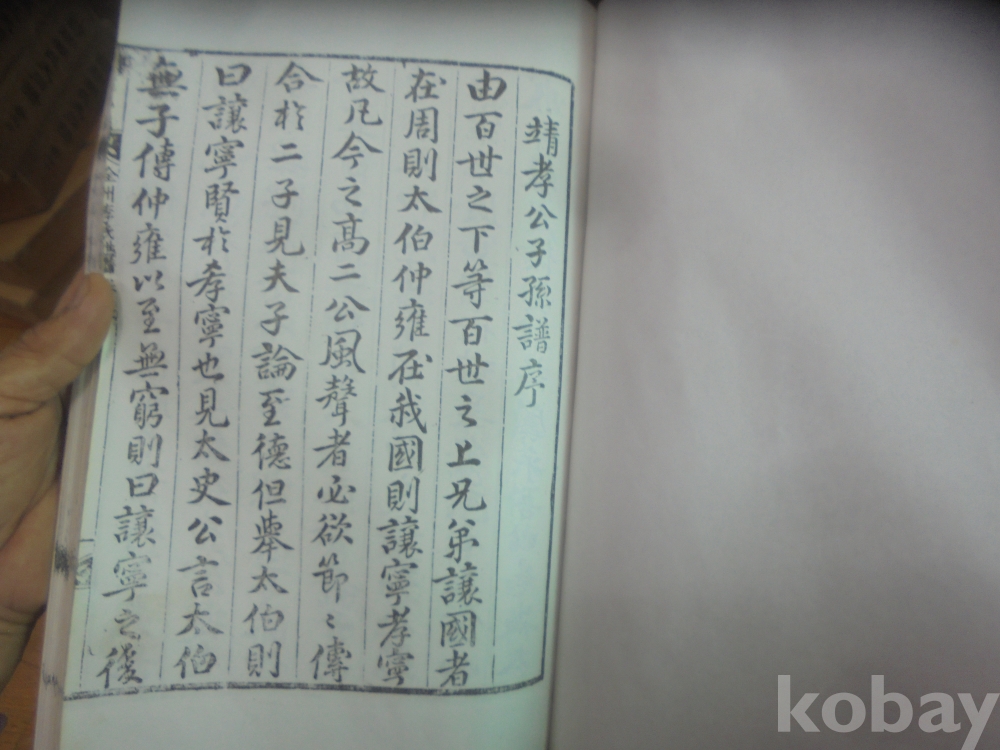 靖孝公子孫譜序
由百世之下等百世之上兄弟讓國者
在周則太伯仲雍在我國則讓寧孝寧
故凡今之高二公風聲者必欲節〻傳
合於二子見夫子論至德但擧太伯則
曰讓寧賢於孝寧也見太史公言太伯
無子傳仲雍以至無窮則曰讓寧之後
全州李氏
kobay